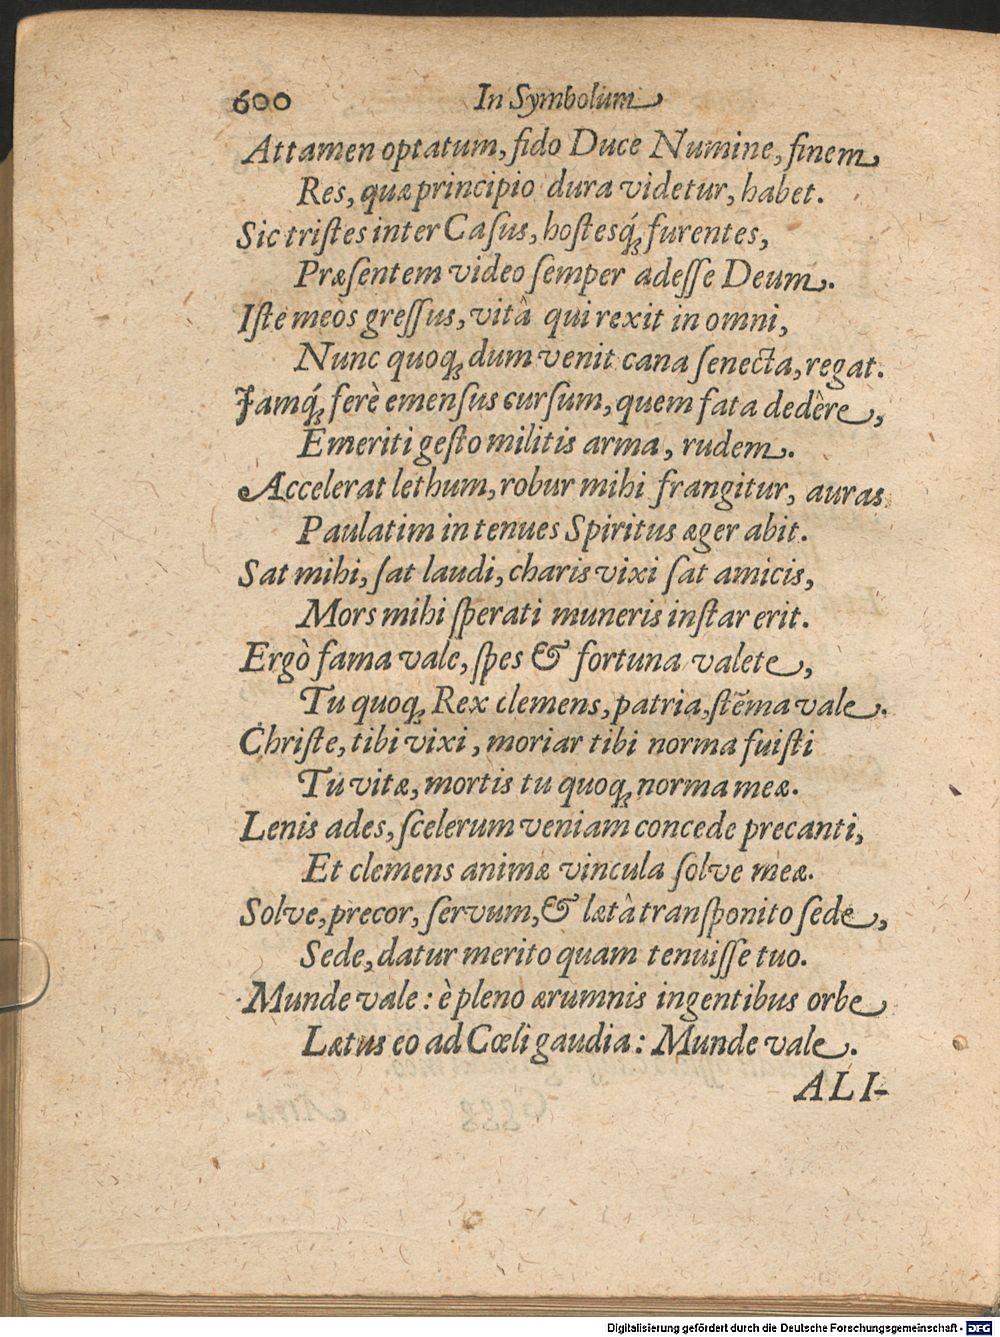 600 In Symbolum
Attamen optatum, fido Duce Numine, finem
Res, quæ principio dura videtur, habet.
Sic triſtes inter Caſus, hoſtesq́ꝫ furentes,
Præſentem video ſemper adeſſe Deum.
Iſte meos greſſus, vitâ qui rexit in omni,
Nunc quoqꝫ dum venit cana ſenecta, regat.
Jamq́ꝫ ferè emenſus curſum, quem fata dedêre,
Emeriti geſto militis arma, rudem.
Accelerat lethum, robur mihi frangitur, auras
Paulatim in tenues Spiritus æger abit.
Sat mihi, ſat laudi, charis vixi ſat amicis,
Mors mihi ſperati muneris inſtar erit.
Ergò fama vale, ſpes & fortuna valete,
Tu quoqꝫ Rex clemens, patria, ſtēma vale.
Chriſte, tibi vixi, moriar tibi norma fuiſti
Tu vitæ, mortis tu quoqꝫ norma meæ.
Lenis ades, ſcelerum veniam concede precanti,
Et clemens animæ vincula ſolve meæ.
Solve, precor, ſervum, & lætâ tranſponito ſede,
Sede, datur merito quam tenuiſſe tuo.
Munde vale: è pleno ærumnis ingentibus orbe
Lætus eo ad Cœli gaudia: Munde vale.
ALI-
Digitalisierung gefördert durch die Deutsche Forschungsgemeinschaft - DFG